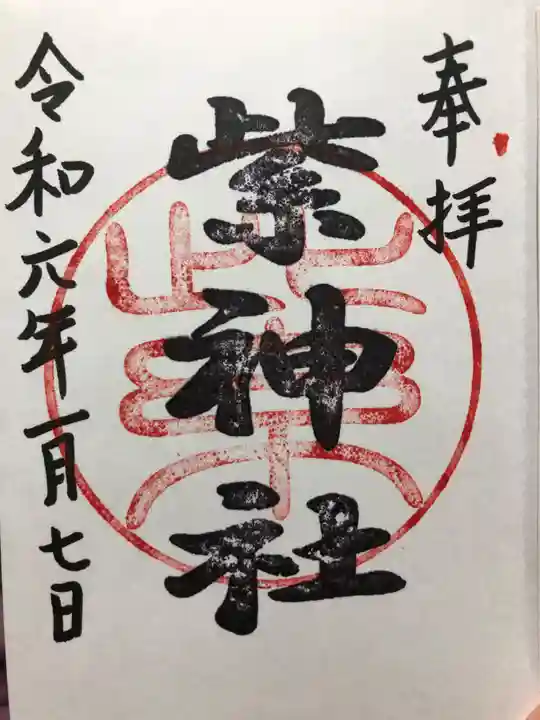 奉拝
紫神社
令和六年一月七日